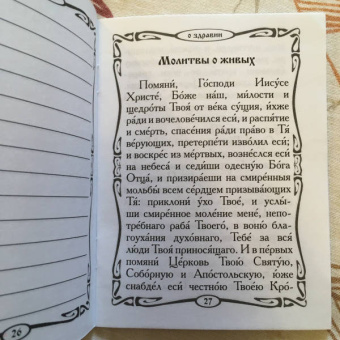 о здравии
Молитвы о живых
Помяни́, Го́споди Иису́се
Христе́, Бо́же наш, ми́лости и
щедро́ты Твоя́ от ве́ка су́щия, и́хже
ра́ди и вочелове́чился еси́, и распя́тие
и сме́рть, спасе́ния ра́ди пра́во в Тя
ве́рующих, претерпе́ти изво́лил еси́;
и воскре́с из ме́ртвых, возне́слся еси́
на небеса́ и седи́ши одесну́ю Бо́га
Отца́, и призира́еши на смире́нныя
мольбы́ всем се́рдцем призыва́ющих
Тя: приклони́ у́хо Твое́, и услы́-
ши смире́нное моле́ние мене́, непо-
тре́бнаго раба́ Твоего́, в воню́ благо-
уха́ния духо́внаго, Тебе́ за вся
лю́ди Твоя́ принося́щаго. И в пе́рвых
помяни́ Це́рковь Твою́ Святу́ю,
Собо́рную и Апо́стольскую, ю́же
снабде́л еси́ честно́ю Твое́ю Кро́-
26
27